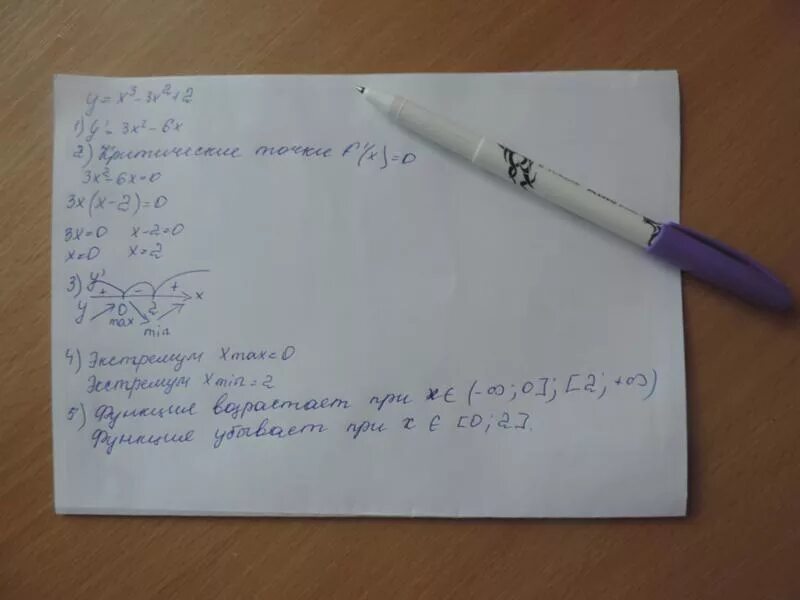 y = x³ - 3x² + 2
1) y' = 3x² - 6x
2) Критические точки f'(x) = 0
3x² - 6x = 0
3x(x - 2) = 0
3x = 0   x - 2 = 0
x = 0   x = 2
3) y' + - + x
y 0 2
max min
4) Экстремум xmax = 0
Экстремум xmin = 2
5) Функция возрастает при x ∈ (-∞; 0]; [2; +∞)
Функция убывает при x ∈ [0; 2].